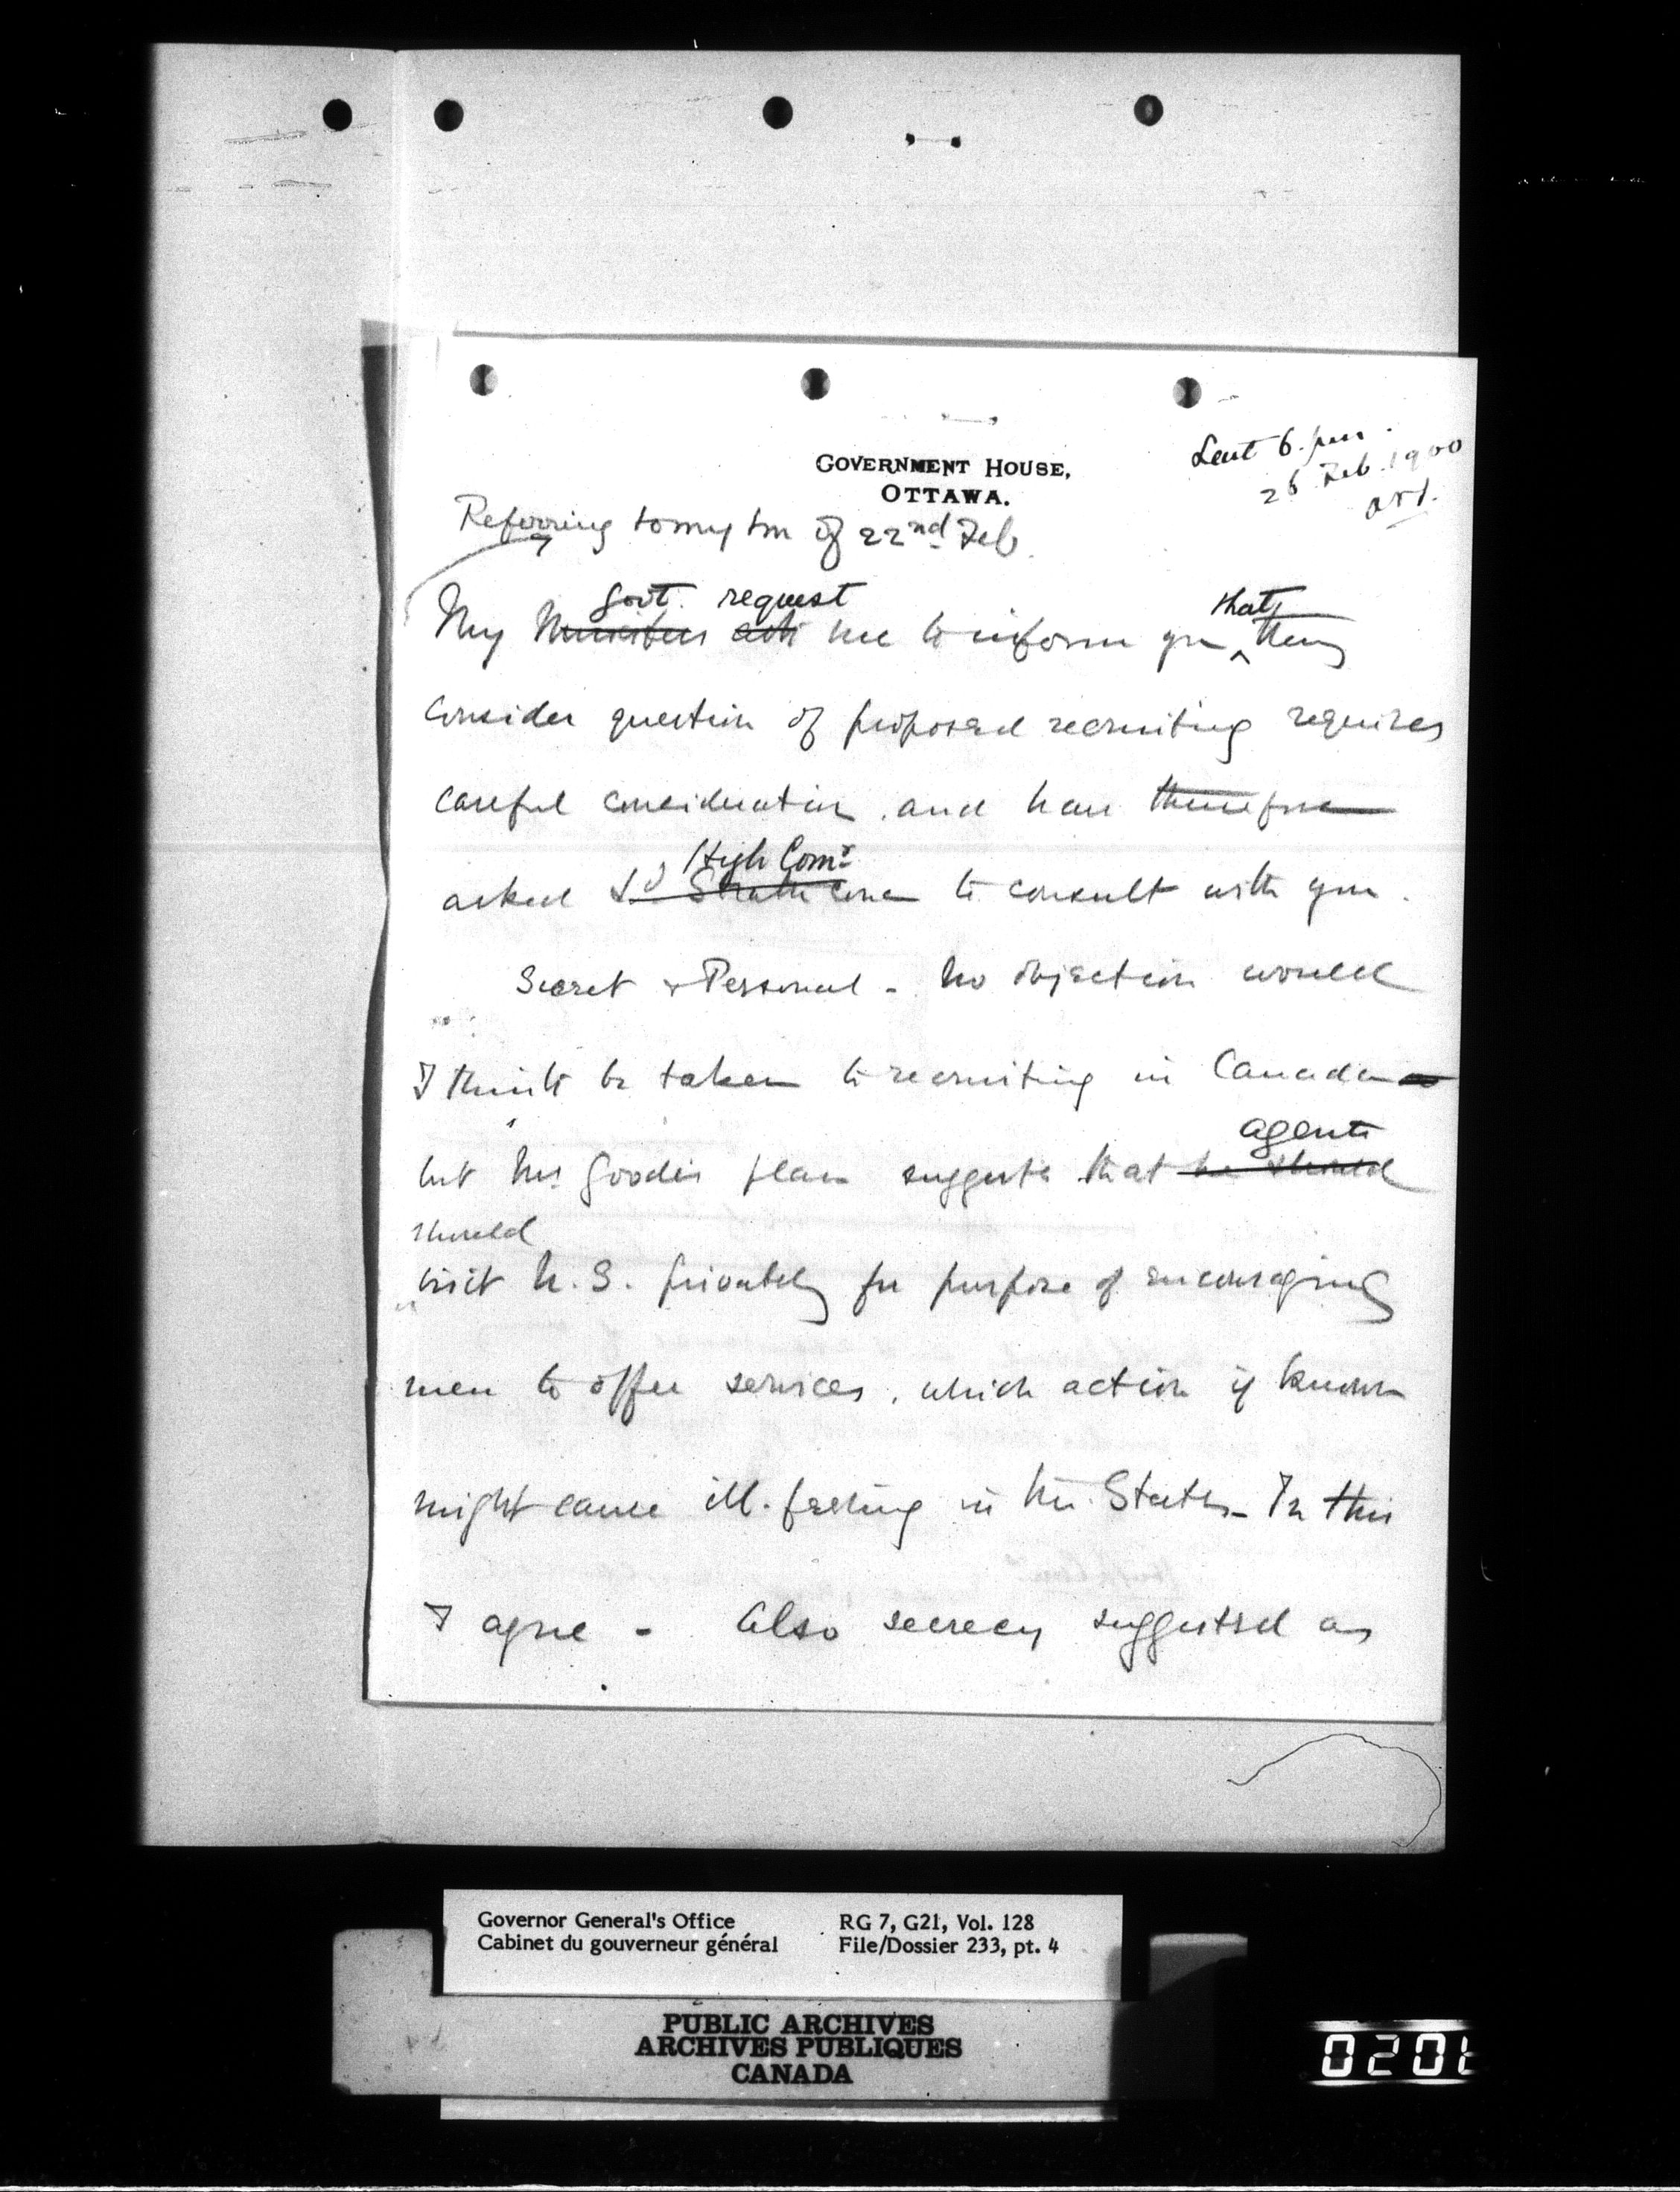 Sent 6. pm.
26 Feb. 1900
GOVERNMENT HOUSE,
OTTAWA.
Referring to my tm of 22nd Feb.
Govt. request that
My Ministers ask me to inform you they
consider question of proposed recruiting requires
careful consideration, and have therefore
High Comr
asked Ld Strathcona to consult with you.
Secret & Personal - No objection would
I think be taken to recruiting in Canada
agents
but Mr. Goodes plan suggests that he should
should
visit U.S. privately for purpose of encouraging
men to offer services, which action if known
might cause ill-feeling in Un. States - In this
I agree - Also secrecy suggested as
Governor General's Office RG 7, G21, Vol. 128
Cabinet du gouverneur général File/Dossier 233, pt. 4
PUBLIC ARCHIVES
ARCHIVES PUBLIQUES
CANADA